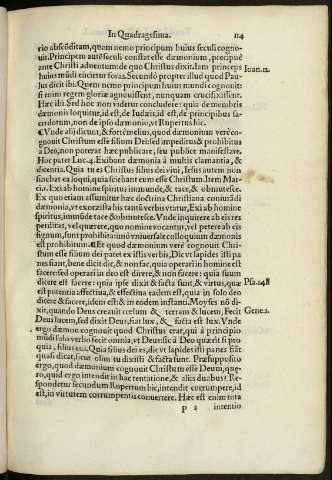 In Quadragesima. 114
rio abscõditam, quam nemo principum huius seculi cogno-
uit. Principem autē seculi constat esse dæmonium, præcipuè
ante Christi aduentum: de quo Christus dixit. Iam princeps Ioan.12.
huius mūdi eiicietur foras. Secundò propter illud quod Pau-
lus dicit ibi. Quem nemo principum huius mundi cognouit:
si enim regem gloriæ agnouissent, nunquam crucifixissent.
Hæc ibi. Sed hoc non videtur concludere: quia de membris
dæmonis loquitur, id est, de Iudæis, id est, de principibus sa-
cerdotum, non de ipso dæmonio, vt Rupertus hic.
¶ Vnde alij dicunt, & fortè melius, quod dæmonium verè co-
gnouit Christum esse filium Dei: sed impeditus & prohibitus
a Deo, non poterat hæc publicare, seu publicè manifestare.
Hoc patet Luc.4. Exibant dæmonia à multis clamantia, &
dicentia. Quia tu es Christus filius dei viui, Iesus autem non
sinebat ea loqui, quia sciebant eum esse Christum. Item Mar-
ci. Exi ab homine spiritus immunde, & tace, & obmutesce.
Ex quo etiam assumitur hæc doctrina Christiana coniurādi
dæmonia, vt exorzista bis tantū verbis vtatur, Exi ab homine
spiritus, immūde tace & obmutesce. Vnde inquirere ab eis res
perditas, vel quærere, quo nomine vocantur, vel petere ab eis
signum, sunt prohibita, imò vniuersale colloquium dæmonis
est prohibitum. ¶ Et quod dæmonium verè cognouit Chri-
stum esse filium dei patet ex istis verbis, Dic vt lapides isti pa-
nes fiant, bene dicit dic, & non fac, quia operari in homine est
facere: sed operari in deo est dicere, & non facere: quia suum
dicere est facere: quia ipse dixit & facta sunt, & virtus, quæ Psa.148
est potentia affectiua, & effectiua eadem est, quia in solo deo
dicere & facere, idem est: & in eodem instanti. Moyses nō di-
xit, quando Deus creauit cœlum & terram & lucem, Fecit Gene.1.
Deus lucem, sed dixit Deus, fiat lux, & facta est lux. Vnde
ergo dæmon cognouit quod Christus erat, qui à principio
mūdi solo verbo fecit omnia, vt Deus: sic à Deo quærit si pro-
quia, filius Quia filius dei es, dic vt lapides isti panes fiāt
quasi dicat, sicut olim tu dixisti & facta sunt. Præsupposito
ergo, quod dæmonium cognouit Christum esse Deum, quæ-
ro, quid ergo intendit in hac tentatione, & aliis duabus? Re-
spondetur secundum Rupertum hic, intendit corrumpere, id
est, in virtutem corrumpentis conuertere. Hæc est enim tota
p 2 intentio